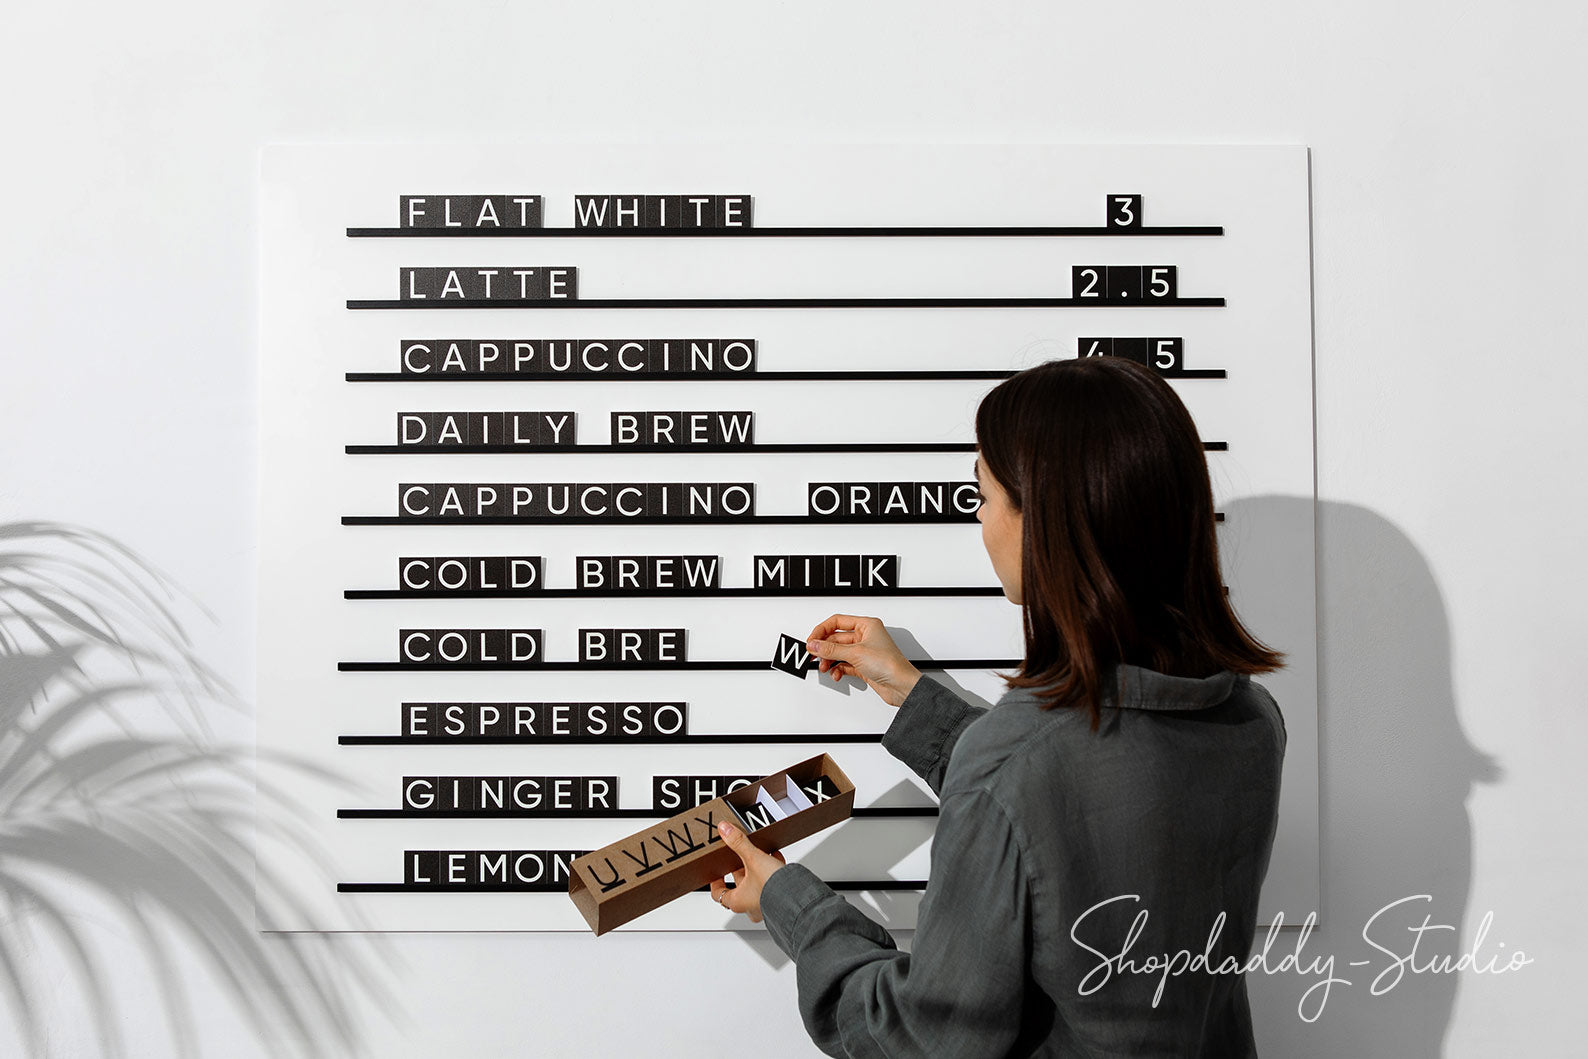 FLAT WHITE 3
LATTE 2.5
CAPPUCCINO 4.5
DAILY BREW
CAPPUCCINO ORANG
COLD BREW MILK
COLD BRE W
ESPRESSO
GINGER SHO
LEMON
U V W X
W X
Shopdaddy-Studio